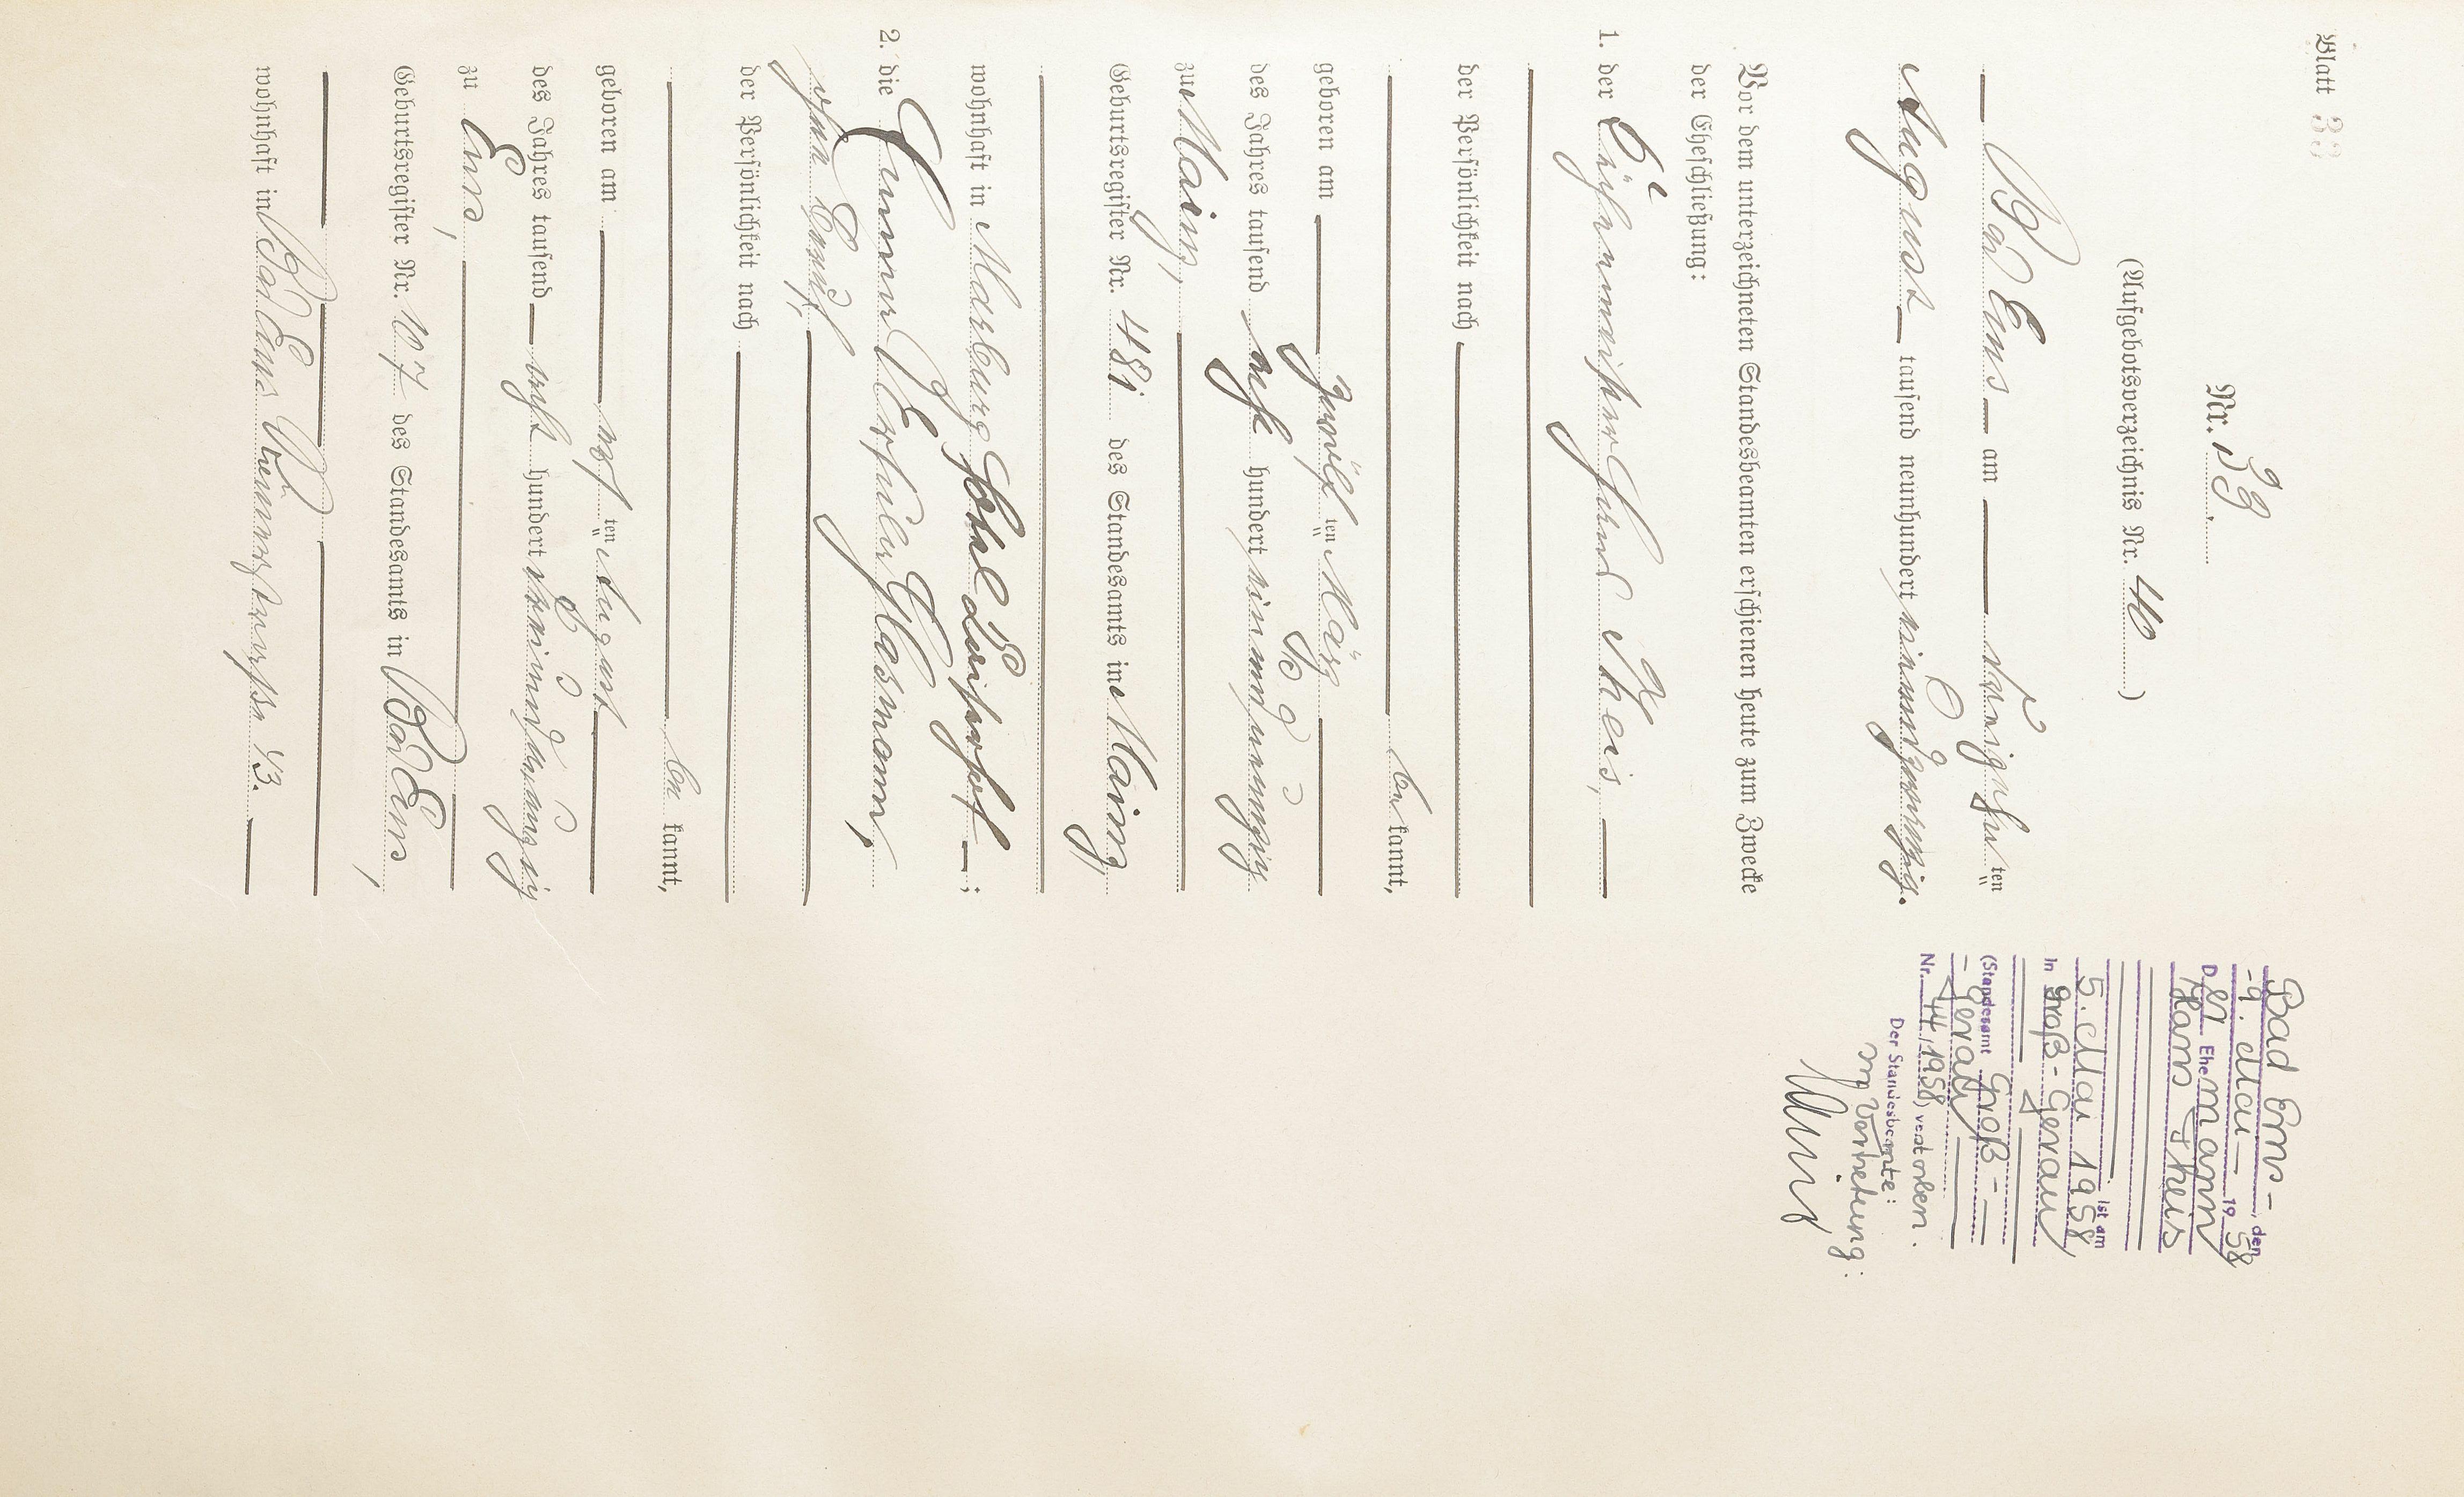 Blatt 33
Nr. 39.
(Aufgebotsverzeichnis Nr. 40)
Bad Ems am dreizehnten
August tausend neunhundert einundzwanzig.
Vor dem unterzeichneten Standesbeamten erschienen heute zum Zwecke
der Eheschließung:
1. der Hans Theis,
der Persönlichkeit nach
bekannt,
geboren am zwölften März
des Jahres tausend acht hundert einundneunzig
zu Mainz,
Geburtsregister Nr. 481 des Standesamts in Mainz,
wohnhaft in Marburg ;
2. die Emma Glasmann,
ohne Beruf,
der Persönlichkeit nach
bekannt,
geboren am ten August
des Jahres tausend acht hundert
zu Ems,
Geburtsregister Nr. 107 des Standesamts in Bad Ems,
wohnhaft in Bad Ems 43.
Bad Ems, den
9. Mai 1958
Der Ehemann
Hans Theis
ist am
5. Mai 1958
in Groß-Gerau
(Standesamt Groß-
Gerau
Nr. 74/1958) verstorben.
Der Standesbeamte:
In Vertretung: